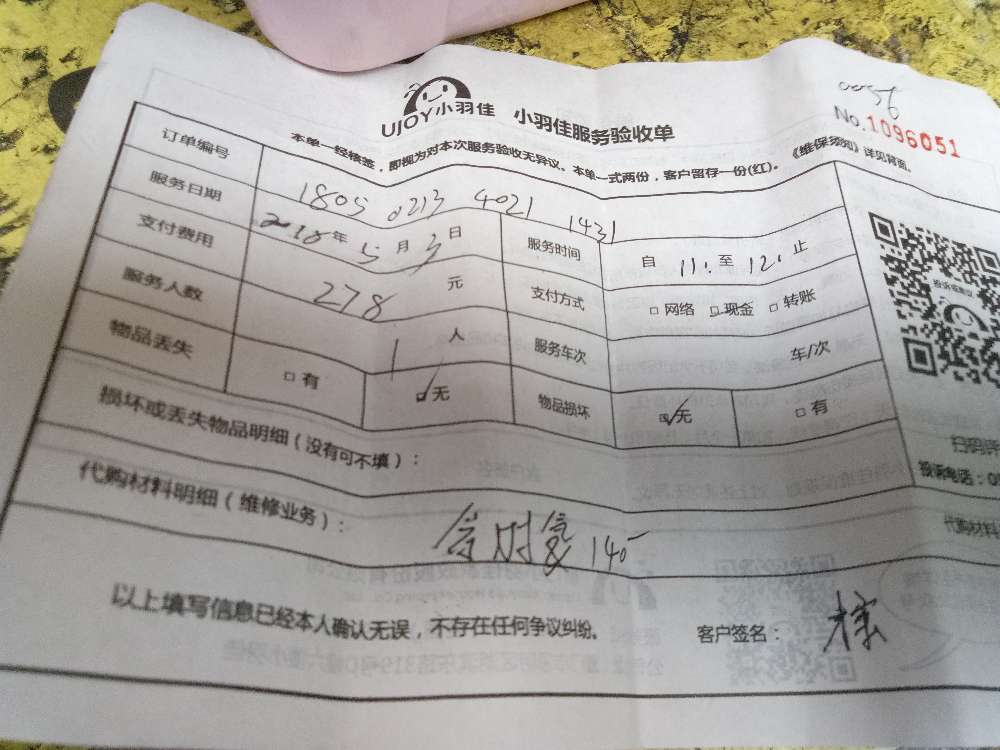 0056
No.1096051
UJOY小羽佳 小羽佳服务验收单
本单一经核签，即视为对本次服务验收无异议。本单一式两份，客户留存一份(红)。《维保须知》详见背面。
订单编号 1805 0213 4021 1431
服务日期 2018年5月3日 服务时间 自 11. 至 12. 止
支付费用 278 元 支付方式 □网络 □现金 □转账
服务人数 1 人 服务车次 车/次
物品丢失 □有 ☑无 物品损坏 ☑无 □有
损坏或丢失物品明细（没有可不填）：
代购材料明细（维修业务）： 140
以上填写信息已经本人确认无误，不存在任何争议纠纷。 客户签名：
投诉电话：0